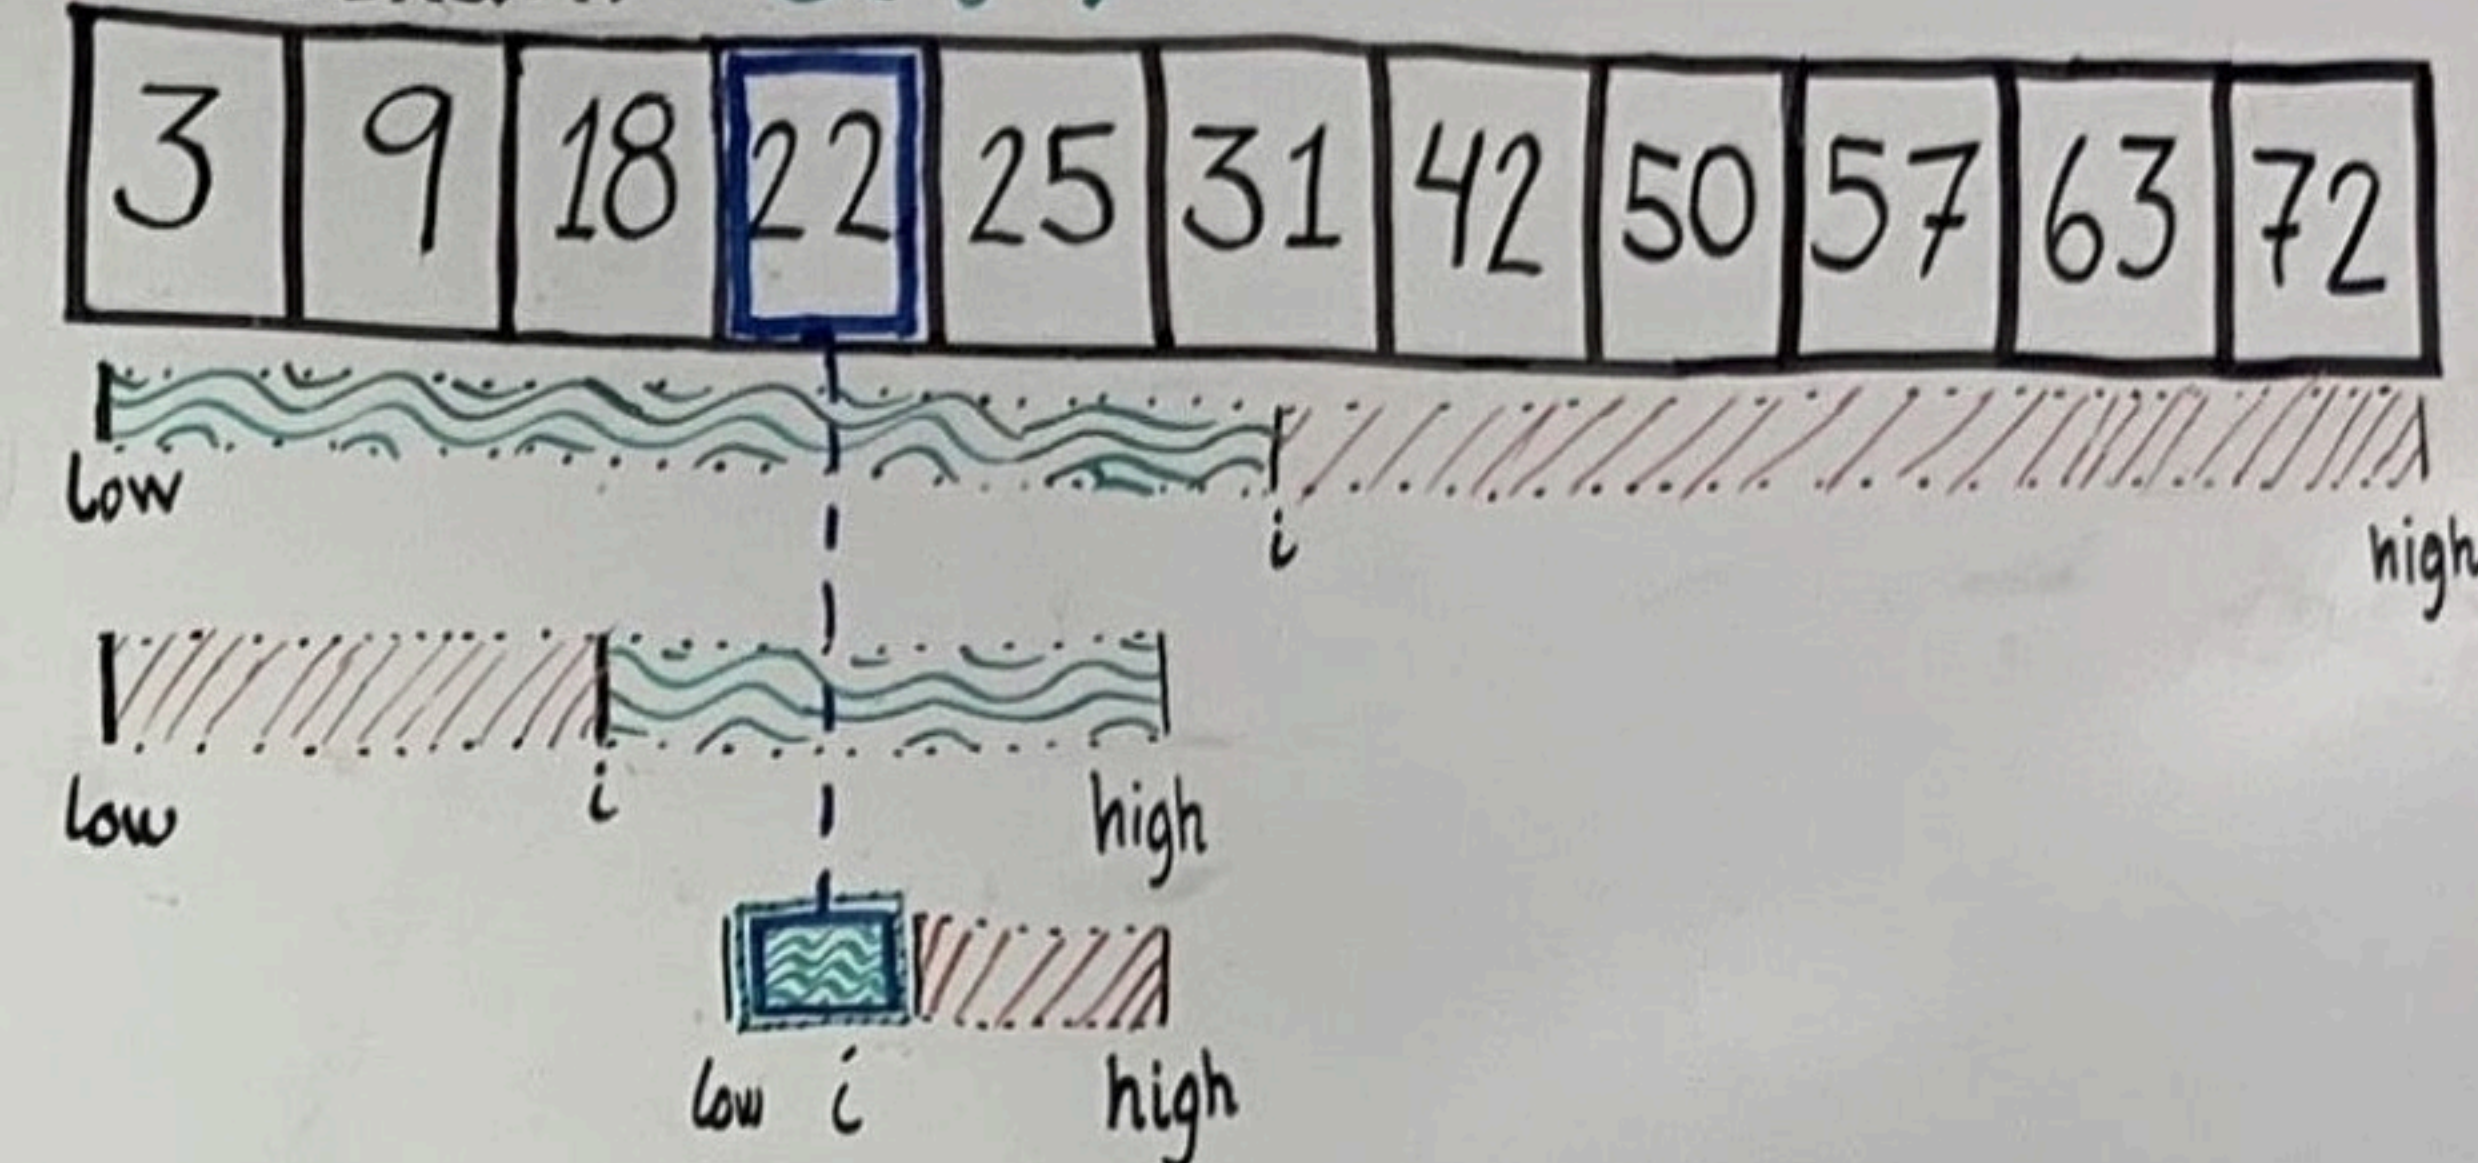 3 9 18 22 25 31 42 50 57 63 72
low i high
low i high
low i high